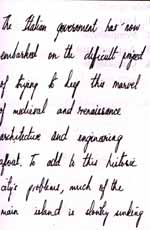 The Italian government has now
embarked on the difficult project
of trying to keep this marvel
of medieval and renaissance
architecture and engineering
afloat. To add to this historic
city's problems, much of the
main island is slowly sinking